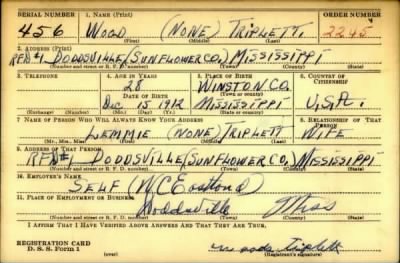 SERIAL NUMBER 1. NAME (Print) ORDER NUMBER
456 WOOD (NONE) TRIPLETT. 2245
(First) (Middle) (Last)
2. ADDRESS (Print)
RFD#1 DODDSVILLE (SUNFLOWER CO.) MISSISSIPPI
(Number and street or R. F. D. number) (Town) (County) (State)
3. TELEPHONE 4. AGE IN YEARS 5. PLACE OF BIRTH 6. COUNTRY OF CITIZENSHIP
28 WINSTON. CO.
DATE OF BIRTH (Town or county)
Dec 15 1912 MISSISSIPPI U.S.A.
(Exchange) (Number) (Mo.) (Day) (Yr.) (State or country)
7. NAME OF PERSON WHO WILL ALWAYS KNOW YOUR ADDRESS 8. RELATIONSHIP OF THAT PERSON
LEMMIE (NONE) TRIPLETT WIFE
(Mr., Mrs., Miss) (First) (Middle) (Last)
9. ADDRESS OF THAT PERSON
RFD#1 DODDSVILLE (SUNFLOWER CO.) MISSISSIPPI
(Number and street or R. F. D. number) (Town) (County) (State)
10. EMPLOYER'S NAME
SELF (W C Eastland)
11. PLACE OF EMPLOYMENT OR BUSINESS
Doddsville Miss
(Number and street or R. F. D. number) (Town) (County) (State)
I AFFIRM THAT I HAVE VERIFIED ABOVE ANSWERS AND THAT THEY ARE TRUE.
REGISTRATION CARD
D. S. S. Form 1 (over) (Registrant's signature)